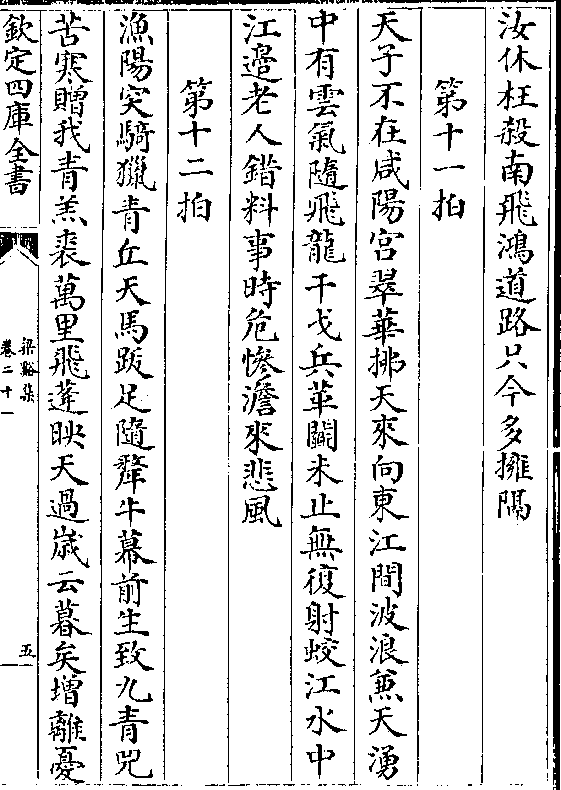 汝休枉殺南飛鴻道路只今多擁隔
第十一拍
天子不在咸陽宮翠華拂天來向東江間波浪兼天湧
中有雲氣隨飛龍干戈兵革鬭未止無復射蛟江水中
江邉老人錯料事時危慘澹來悲風
第十二拍
漁陽突騎獵青丘天馬跋足隨犛牛幕前生致九青兕
苦寒贈我青羔裘萬里飛蓬映天過嵗云暮矣增離憂
欽定四庫全書
梁谿集
卷二十一
五